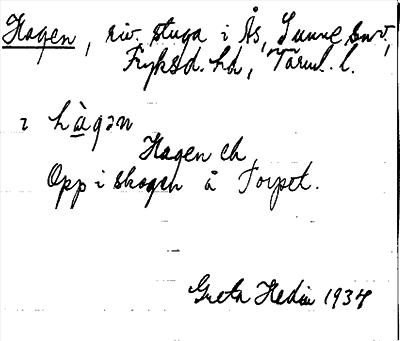 Hagen, riv. stuga i Ås, Sunne sn.,
Fryksd. hd, Värml. l.
i hàgən
Hagen
Opp i skogen å Torpet.
Greta Hedin 1934